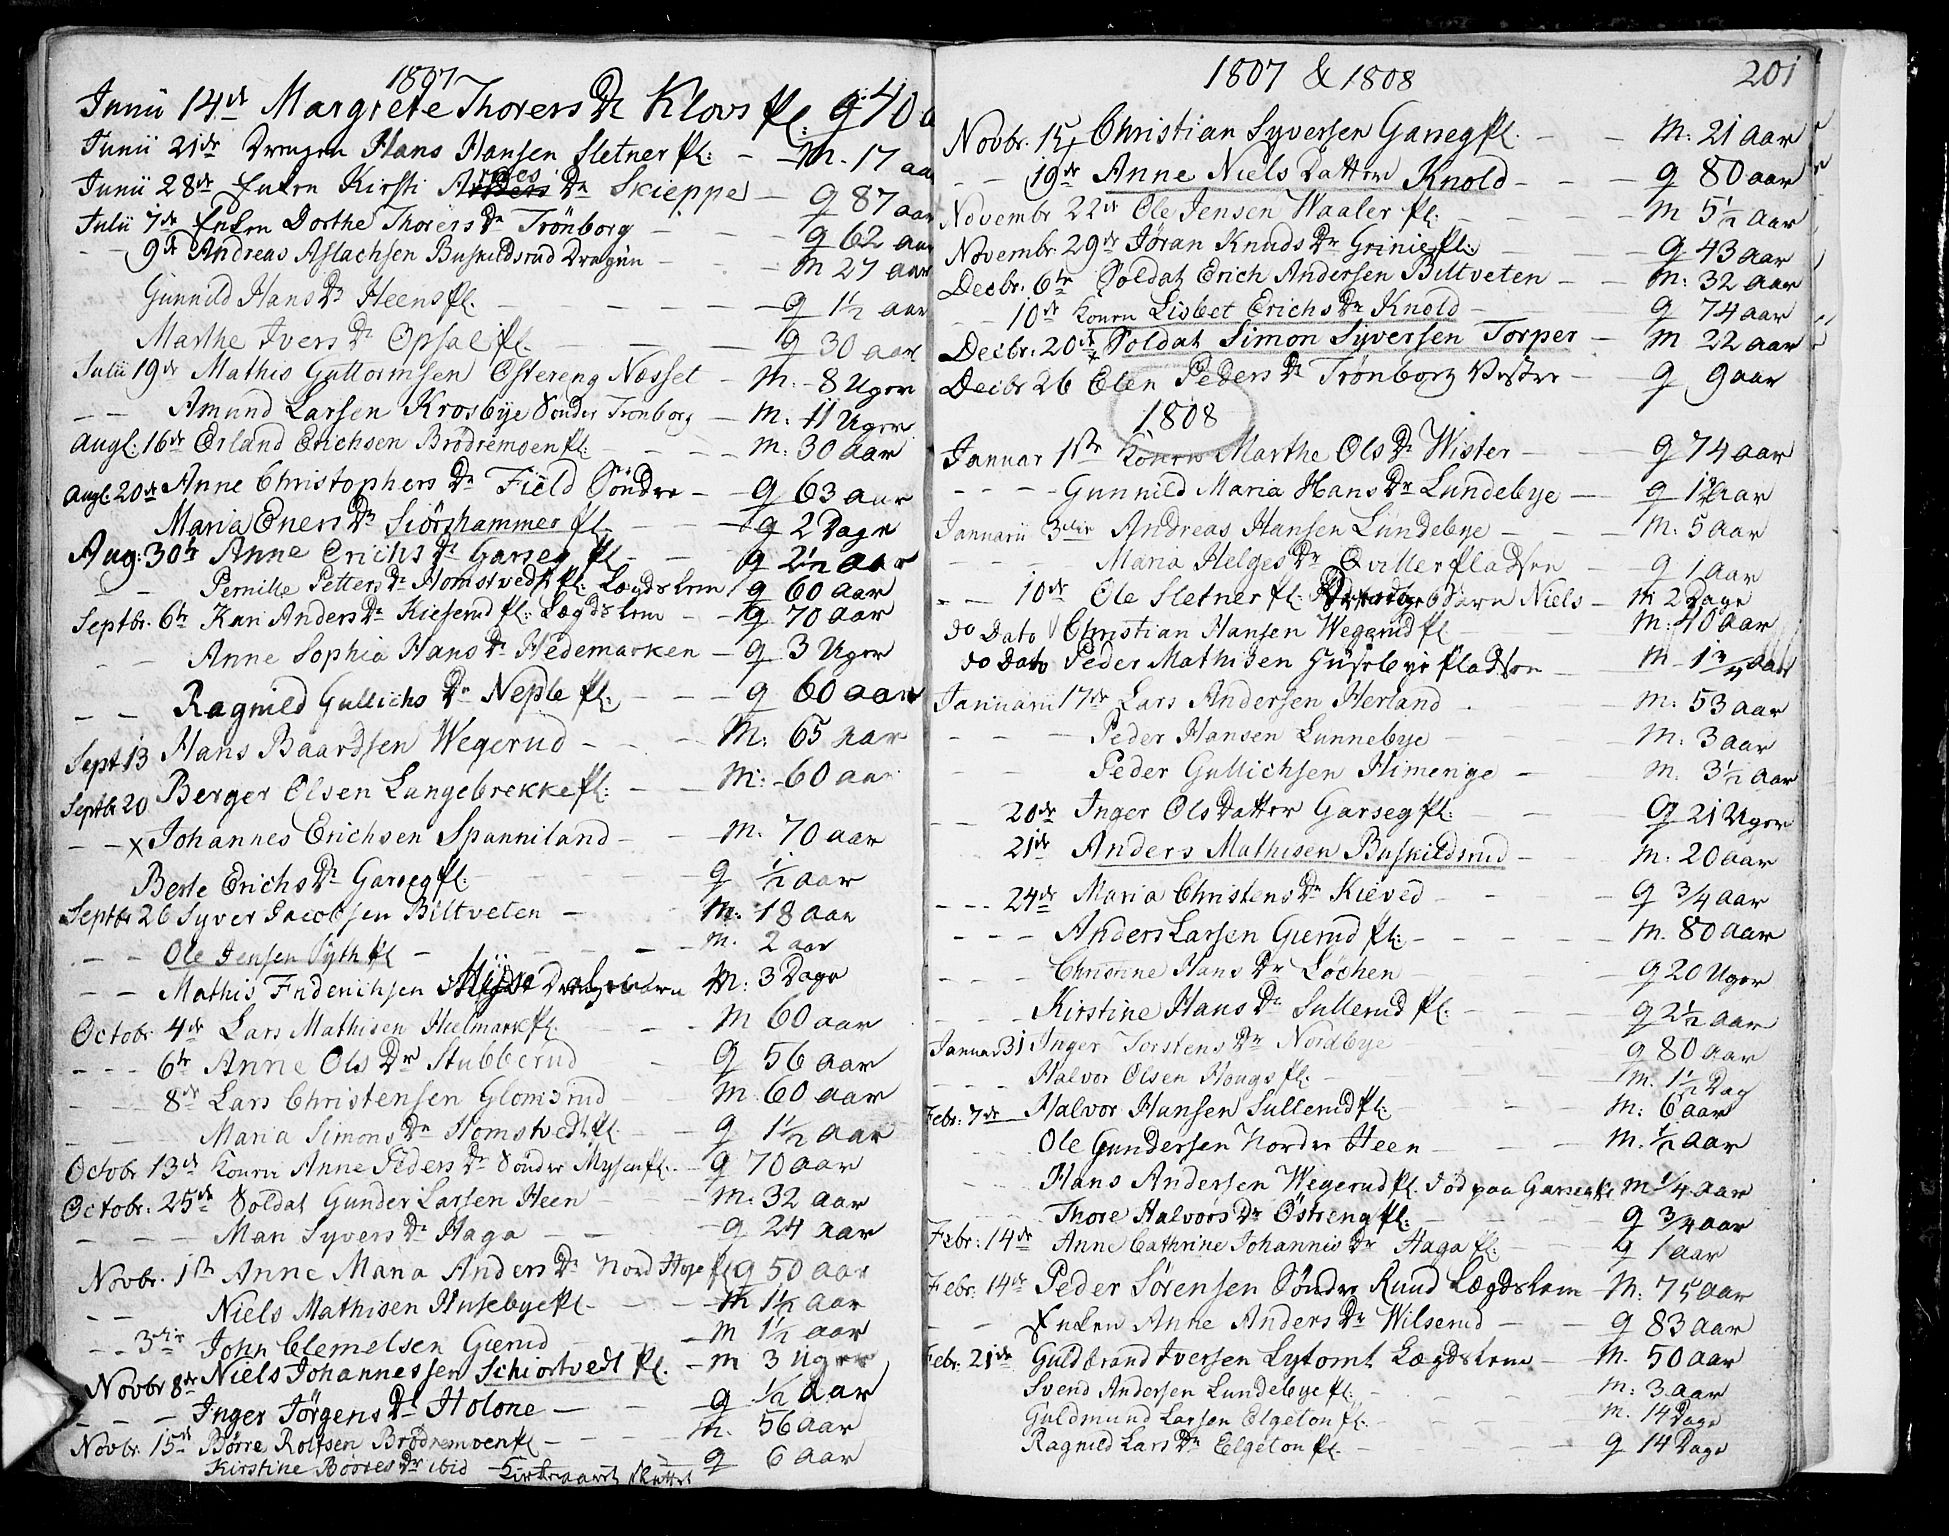 1807
Junii 14de Margrete Thorers Dr Klovs pl. q 40 a
Junii 21de Dragon Hans Hansen Sletner pl: - m. 17 aar
Junii 28de Enken Kirsti Dr Skieppe - q 87 aar
Julii 7de Enken Dorthe Thorers Dr Trönborg - q 62 aar
- - 9de Andreas Aslachsen Buskildsrud Dragün - m 27 aar
Gunnild Hans Dr Heens pl. - - q 1½ aar
Marthe Ivers Dr Opsal pl. - - q 30 aar
Julii 19de Mathis Guttormsen Ostereng Næsset - m: 8 Uger
- - Amund Larsen Krosbye Sönder Trönborg - m: 11 Uger
Augl: 16de Erland Erichsen Brödremoen pl: - m: 30 aar
Augl: 20de Anne Christophers Dr Fiëld Söndre - q 63 aar
Maria Eners Dr Siörshammer pl. - - q 2 Dage
Aug: 30te Anne Erichs Dr Garseg pl - - q 2½ aar
- - Pernille Petters Dr Homstvedt pl: Lægdslem q 60 aar
Septbr. 6te Kari Anders Dr Kieserud pl: Lægdslem - q 70 aar
- - Anne Sophia Hans Dr Hedemarken - q 3 Uger
- - Ragnild Gullichs Dr Neple pl: - - q 60 aar
Sept 13 Hans Baardsen Wegerud - - m: 65 aar
Septbr 20 Berger Olsen Langebrekke pl: - - m: 60 aar
- - x Johannes Erichsen Spanniland - - m. 70 aar
Berte Erichs Dr Garseg pl: - - q ½ aar
Septbr 26 Syver Jacobsen Biltveten - m: 18 aar
- - Ole Jensen Syth pl - - m. 2 aar
- - Mathis Friderichsen m: 3 Dage
Octobr. 4de Lars Mathisen Heelmark pl. - - m 60 aar
- - - 6te Anne Ols Dr Stubberud - q 56 aar
- - 8de Lars Christensen Glomsrud - m 60 aar
- - Maria Simons Dr Homstvedt pl - q 1½ aar
Octobr 13de Konen Anne Peders Dr Sönder Mysen pl. - q 70 aar
Octobr. 25de Soldat Gunder Larsen Heen - - m: 32 aar
- - - Mari Syvers Dr Haga - - q 24 aar
Novbr. 1ste Anne Maria Anders Dr Nord Hoje pl q 50 aar
- - Niels Mathisen Husebye pl - - m 1½ aar
- - 3die John Clemetsen Gierud - - m 1½ aar
Novbr 8de Niels Johannessen Schiortvedt pl. - m 3 Uger
- - - Inger Jörgens Dr Holone - - q ¼ aar
Novbr. 15de Börre Rolfsen Brödremoen pl - - m. 56 aar
Kirstine Börres Dr ibid q 6 aar
1807 & 1808 201
Novbr. 15de Christian Syversen Garseg pl. - - m: 21 aar
- - 19de Anne Niels Datter Knold - - - q 80 aar
Novembr 22de Ole Jensen Waaler pl: - - m 5½ aar
Novembr. 29de Jøran Knuds Dr Grinie pl: - - q 43 aar
Decbr. 6te Soldat Erich Andersen Biltveten - - m: 32 aar
10de Konen Lisbet Erichs Dr Knold - q 74 aar
Decbr: 20de x Soldat Simon Syversen Torper - m 22 aar
Decbr 26 Elen Peders Dr Trønborg Vestre - q 9 aar
1808
Januar 1ste Konen Marthe Ols Dr Wister - - q 74 aar
- - - Gunnild Maria Hans Dr Lundebye - q 1½ aar
Januarii 3die Andreas Hansen Lundebye - - m: 5 aar
- - - Maria Helges Dr Qviller pladsen - q 1 aar
- - 10de Ole Sletner pl: Barn Niels - m 2 Dage
do Dato Christian Hansen Wegerud pl - m: 40 aar
do Dato Peder Mathisen Husebye pladsen - m 1¾ aar
Januarii 17de Lars Andersen Herland - - m: 53 aar
- - - Peder Hansen Lunnebye - - m: 3 aar
- - Peder Gullichsen Himenge - - m. 3½ aar
- - 20de Inger Ols Datter Garseg pl. - - q 21 Uger
21de Anders Mathisen Buskildsrud - m: 20 aar
- - - 24de Maria Christens Dr Kieved - - q ¾ aar
- - - Anders Larsen Gierud pl: - - m. 80 aar
- - Christine Hans Dr Löchen - - q 20 Uger
- - - Kirstine Hans Dr Sullerud pl. - - q 2½ aar
Januar 31 Inger Torstens Dr Nordbye - - q 80 aar
- - - Halvor Olsen Hougs pl: - m. 1½ Dag
Febr. 7de Halvor Hansen Sullerud pl: - - m: 6 aar
- - Ole Gundersen Nordre Heen - - m. ½ aar
- - Hans Andersen Wegerud pl. Föd paa Garseg pl. m ¼ aar
Thore Halvors Dr Östreng pl: - - q ¾ aar
Febr: 14de Anne Cathrine Johannis Dr Haga pl: - q 1 aar
Febr. 14de Peder Sørensen Søndre Ruud Lægdslem - m: 75 aar
- - Enken Anne Anders Dr Wilserud - - q 83 aar
Febr. 21de Guldbrand Iversen Lytomt Lægdslem - m. 50 aar
Svend Andersen Lundebye pl. - m: 3 aar
Guldmund Larsen Elgeton pl. - - m. 14 Dage
Ragnild Lars Dr Elgeton pl. - - q 14 Dage